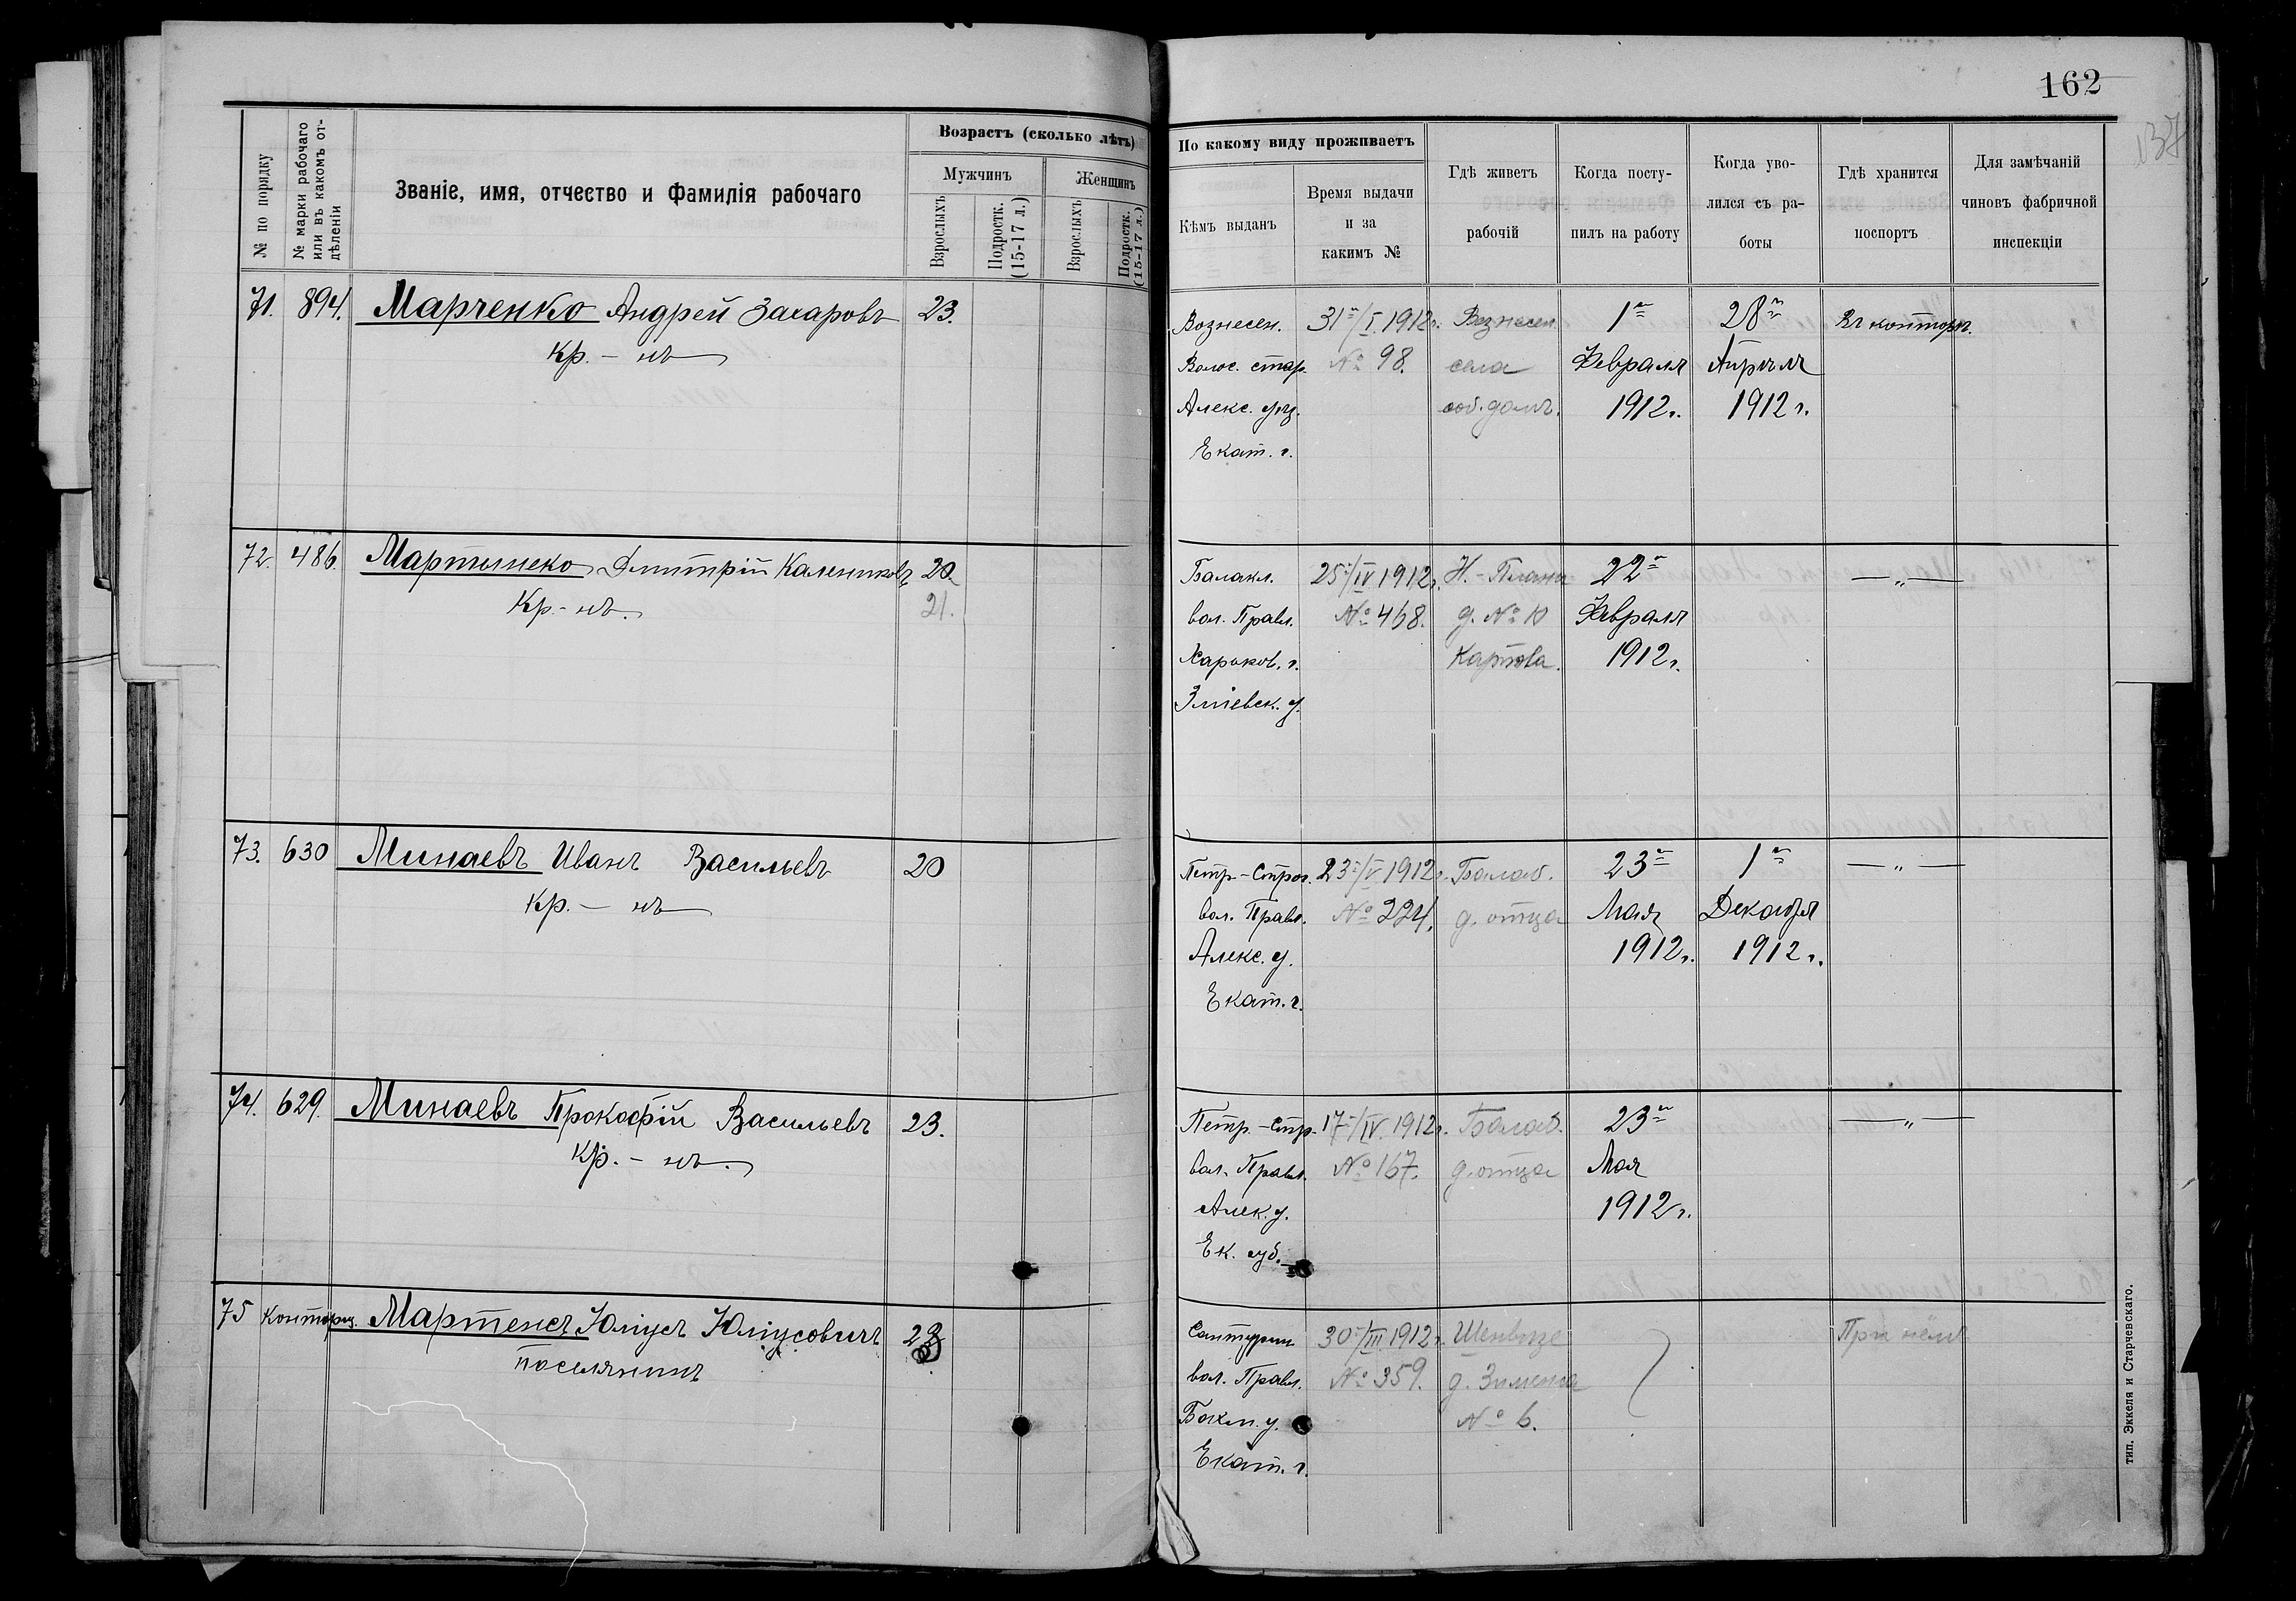 162
137
№ по порядку
№ марки рабочаго или въ какомъ отдѣленіи
Званіе, имя, отчество и фамилія рабочаго
Возрастъ (сколько лѣтъ)
Мужчинъ
Женщинъ
Взрослыхъ
Подростк. (15-17 л.)
Взрослыхъ
Подростк. (15-17 л.)
По какому виду проживаетъ
Кѣмъ выданъ
Время выдачи
и за
какимъ №
Гдѣ живетъ
рабочій
Когда посту-
пилъ на работу
Когда уво-
лился съ ра-
боты
Гдѣ хранится
поспортъ
Для замѣчаній
чиновъ фабричной
инспекціи
71. 894. Марченко Андрей Захаровъ 23.
Кр. - нъ
Вознесен. 31го/I. 1912г. Вознесен. 1го 28го Въ конторѣ.
Волос. стар. № 98. села Февраля Апрѣля
Алекс. уѣз. соб. домъ. 1912г. 1912г.
Екат. г.
72. 486. Мартынеко Дмитрій Калениковъ 20.
Кр. - нъ. 21.
Балакл. 25/IV 1912г. Н.-Планъ 22го — „ —
вол. Правл. № 468. д. № 10 Февраля
Харьков. г. Карпова. 1912г.
Зміевск. у.
73. 630 Минаевъ Иванъ Васильевъ 20
Кр. - нъ
Петр-Строг. 23/V 1912г. Балаб. 23го 1го — „ —
вол. Правл. № 224. д. отца Мая Декабря
Алекс. у. 1912г. 1912г.
Екат. г.
74. 629. Минаевъ Прокофій Васильевъ 23.
Кр. - нъ.
Петр.-Стр. 17/IV. 1912г. Балаб. 23го — „ —
вол. Правл. № 167. д. отца Мая
Алек. у. 1912г.
Ек. губ.
75 Конторщ. Мартенсъ Юліусъ Юліусовичъ 28
поселянинъ
30/III 1912г. Шенвизе При нёмъ
вол. Правл. № 359. д. Зименса
Бахм. у. № 6.
Екат. г.
тип. Эккеля и Старчевскаго.